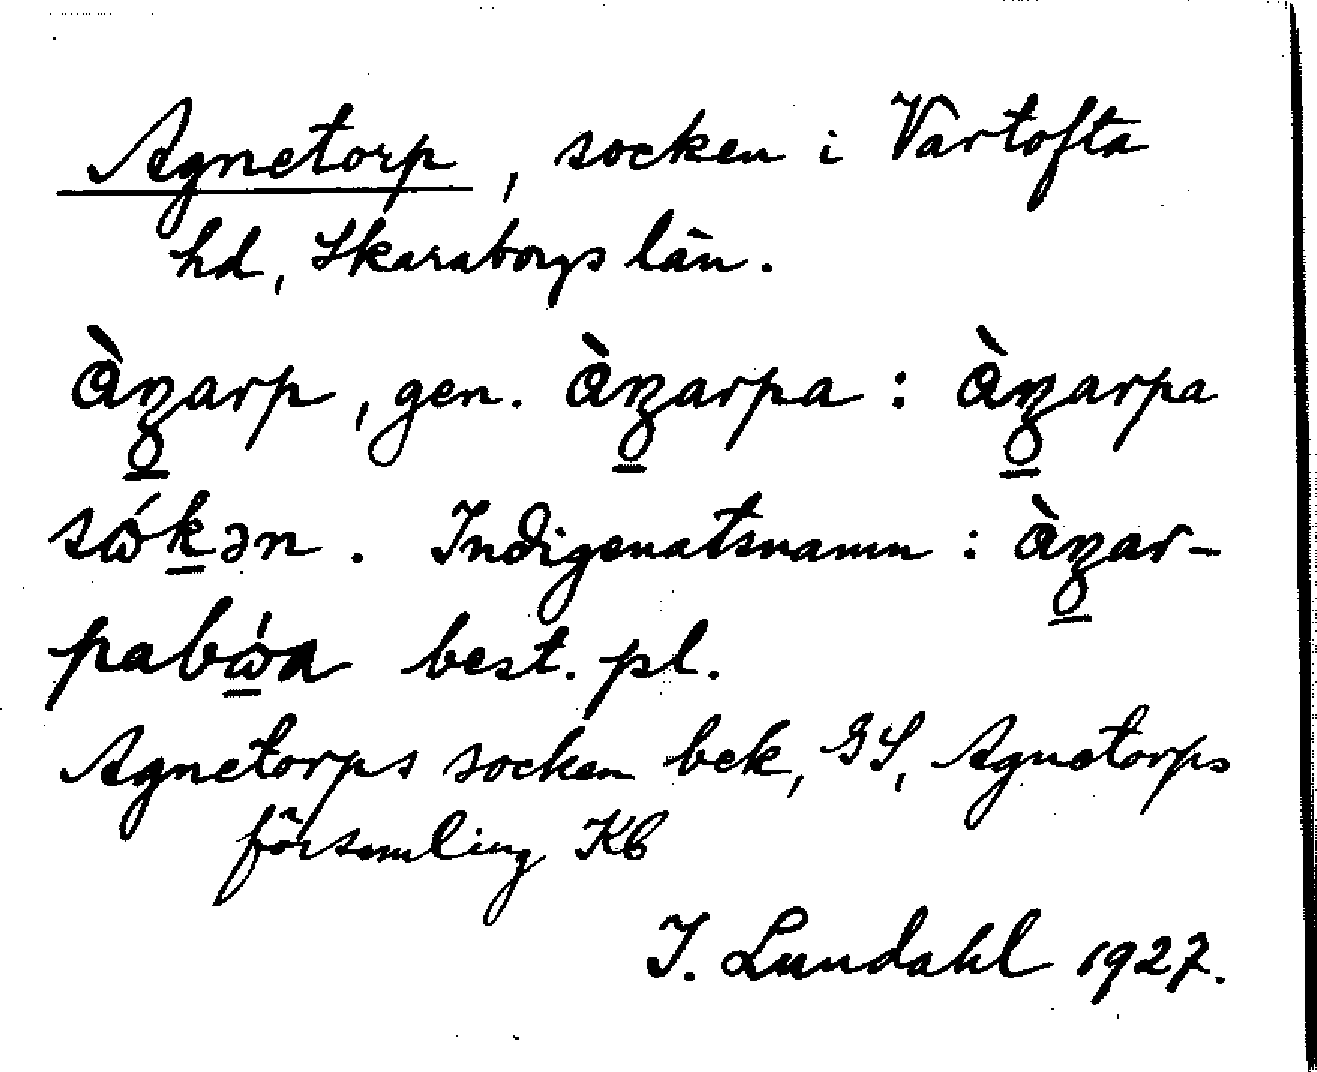 Agnetorp, socken i Vartofta
hd, Skaraborgs län.
àŋ̲arp, gen. àŋ̲arpa : àŋ̲arpa
sώk̲ən. Indigenatsnamn : àŋ̲ar-
pabώ̲a best. pl.
Agnetorps socken bek, GS, Agnetorps
församling Kb
I. Lundahl 1927.